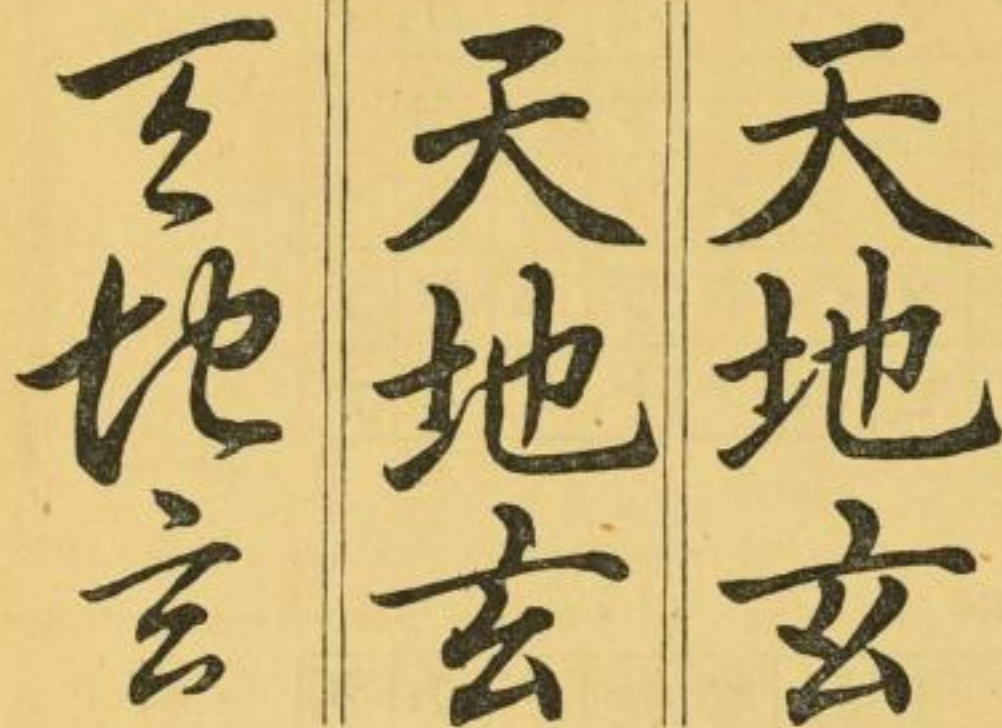 天地玄
天地玄
天地玄